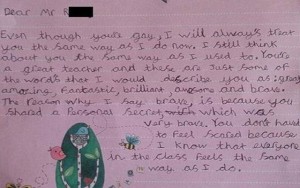 Dear Mr R
Even though you're gay, I will always treat
you the same way as I do now. I still think
about you the same way as I used to. You're
a great teacher and these are just some of
the words that I would describe you as: great
amazing, fantastic, brilliant, awesome and brave.
The reason why I say brave, is because you
shared a Personal Secret which was
very brave. You don't have
to feel scared because
I know that everyone
in the class feels the same
way as I do.